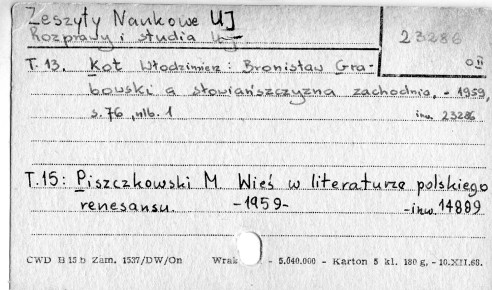 Zeszyty Naukowe UJ
Rozprawy i studia UJ
23286
O II
T. 13. Kot Włodzimierz: Bronisław Gra-
bowski a słowiańszczyzna zachodnia. - 1959,
s. 76, nlb. 1 inw. 23286
T. 15: Piszczkowski M. Wieś w literaturze polskiego
renesansu. -1959- -inw. 14889
CWD B 15 b Zam. 1537/DW/On Wrak - 5.040.000 - Karton 5 kl. 180 g. - 10.XII.68.